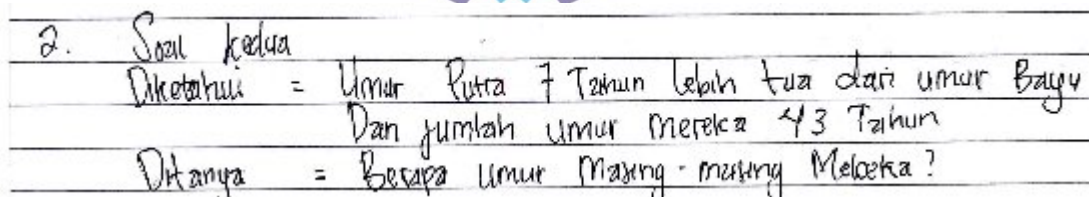 2. Soal kedua
Diketahui = Umur Putra 7 Tahun lebih tua dari umur Bayu
Dan jumlah umur mereka 43 Tahun
Ditanya = Berapa umur Masing-masing Mereka?